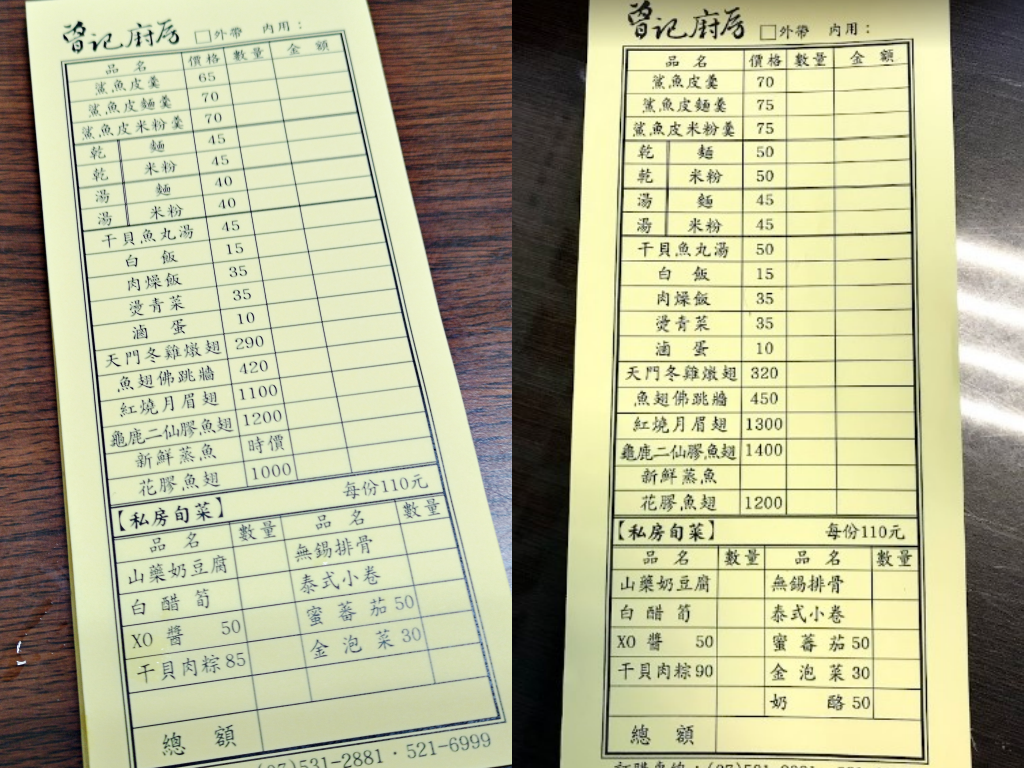 曾記府房 □外帶 內用：
品名 價格 數量 金額
鯊魚皮羹 65
鯊魚皮麵羹 70
鯊魚皮米粉羹 70
乾 麵 45
乾 米粉 45
湯 麵 40
湯 米粉 40
干貝魚丸湯 45
白飯 15
肉燥飯 35
燙青菜 35
滷蛋 10
天門冬雞燉翅 290
魚翅佛跳牆 420
紅燒月眉翅 1100
龜鹿二仙膠魚翅 1200
新鮮蒸魚 時價
花膠魚翅 1000
【私房旬菜】 每份110元
品名 數量 品名 數量
山藥奶豆腐 無錫排骨
白醋筍 泰式小卷
XO醬 50 蜜蕃茄 50
干貝肉粽 85 金泡菜 30
總額
(07)531-2881·521-6999
曾記府房 □外帶 內用：
品名 價格 數量 金額
鯊魚皮羹 70
鯊魚皮麵羹 75
鯊魚皮米粉羹 75
乾 麵 50
乾 米粉 50
湯 麵 45
湯 米粉 45
干貝魚丸湯 50
白飯 15
肉燥飯 35
燙青菜 35
滷蛋 10
天門冬雞燉翅 320
魚翅佛跳牆 450
紅燒月眉翅 1300
龜鹿二仙膠魚翅 1400
新鮮蒸魚
花膠魚翅 1200
【私房旬菜】 每份110元
品名 數量 品名 數量
山藥奶豆腐 無錫排骨
白醋筍 泰式小卷
XO醬 50 蜜蕃茄 50
干貝肉粽 90 金泡菜 30
奶酪 50
總額